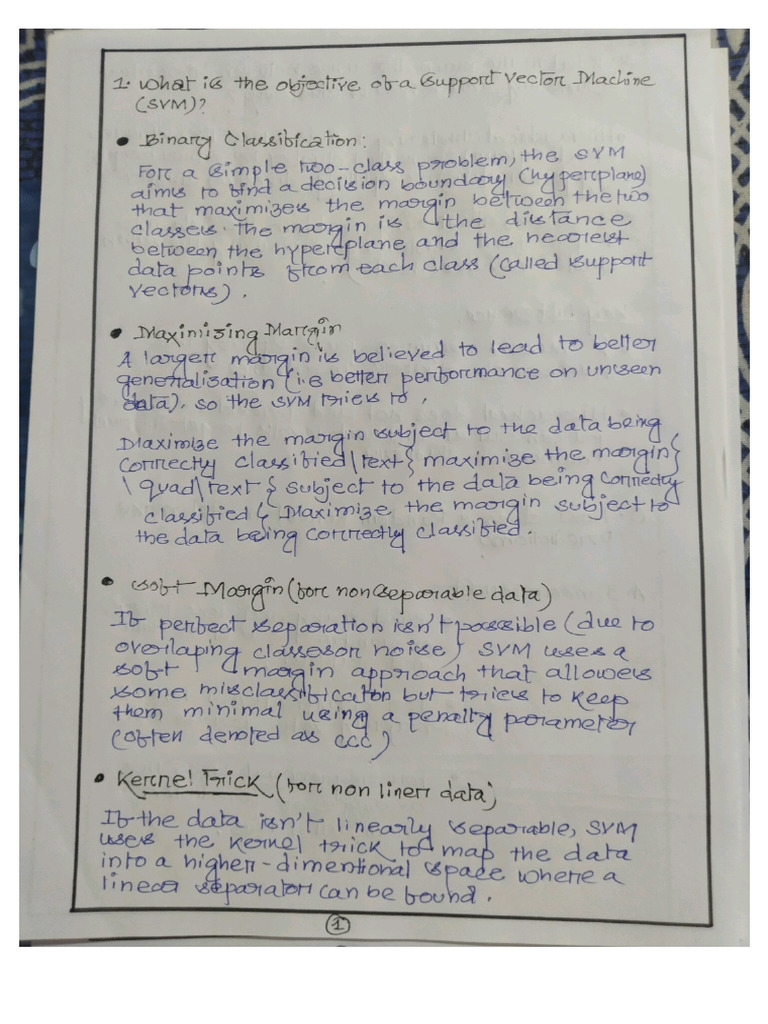 1. What is the objective of a Support Vector Machine
(SVM)?
• Binary Classification:
For a simple two-class problem, the SVM
aims to find a decision boundary (hyperplane)
that maximizes the margin between the two
classes. The margin is the distance
between the hyperplane and the nearest
data points from each class (called support
vectors).
• Maximizing Margin
A larger margin is believed to lead to better
generalisation (i.e better performance on unseen
data). so the SVM tries to,
Maximize the margin subject to the data being
correctly classified\text{ maximize the margin}
\quad\text{ subject to the data being correctly
classified{ Maximize the margin subject to
the data being correctly classified.
• Soft Margin (for non separable data)
If perfect separation isn't possible (due to
overlaping classes or noise) SVM uses a
soft margin approach that allowes
some misclassificaton but tries to keep
them minimal using a penalty parameter
(often denoted as CCC)
• Kernel Trick (for non linerr data)
If the data isn't linearly separable, SVM
uses the kernel trick to map the data
into a higher-dimentional space where a
linear separator can be found.
1